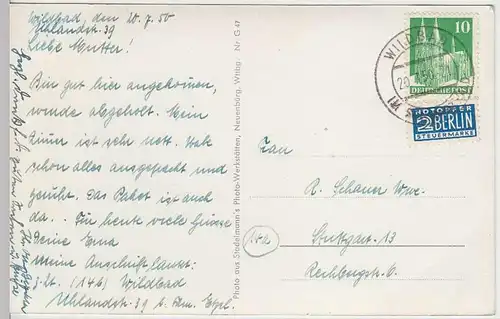 Wildbad, den 20.7.50
Uhlandstr. 39
Liebe Mutter!
Bin gut hier angekommen,
wurde abgeholt. Mein
Zimmer ist sehr nett. Hab
schon alles ausgepackt und
geruht. Das Paket ist auch
da... Für heute viele Grüsse
Deine Erna
Meine Anschrift lautet:
z. Zt. (14b) Wildbad
Uhlandstr. 39 b. Fam. Etzel.
Photo aus Stadelmann's Photo-Werkstätten, Neuenbürg, Wttbg. Nr. G 47
10
DEUTSCHE POST
WILDBAD
NOTOPFER
2 BERLIN
STEUERMARKE
Frau
R. Schauer Wwe.
Stuttgart-13
Rechbergstr. 6
14a